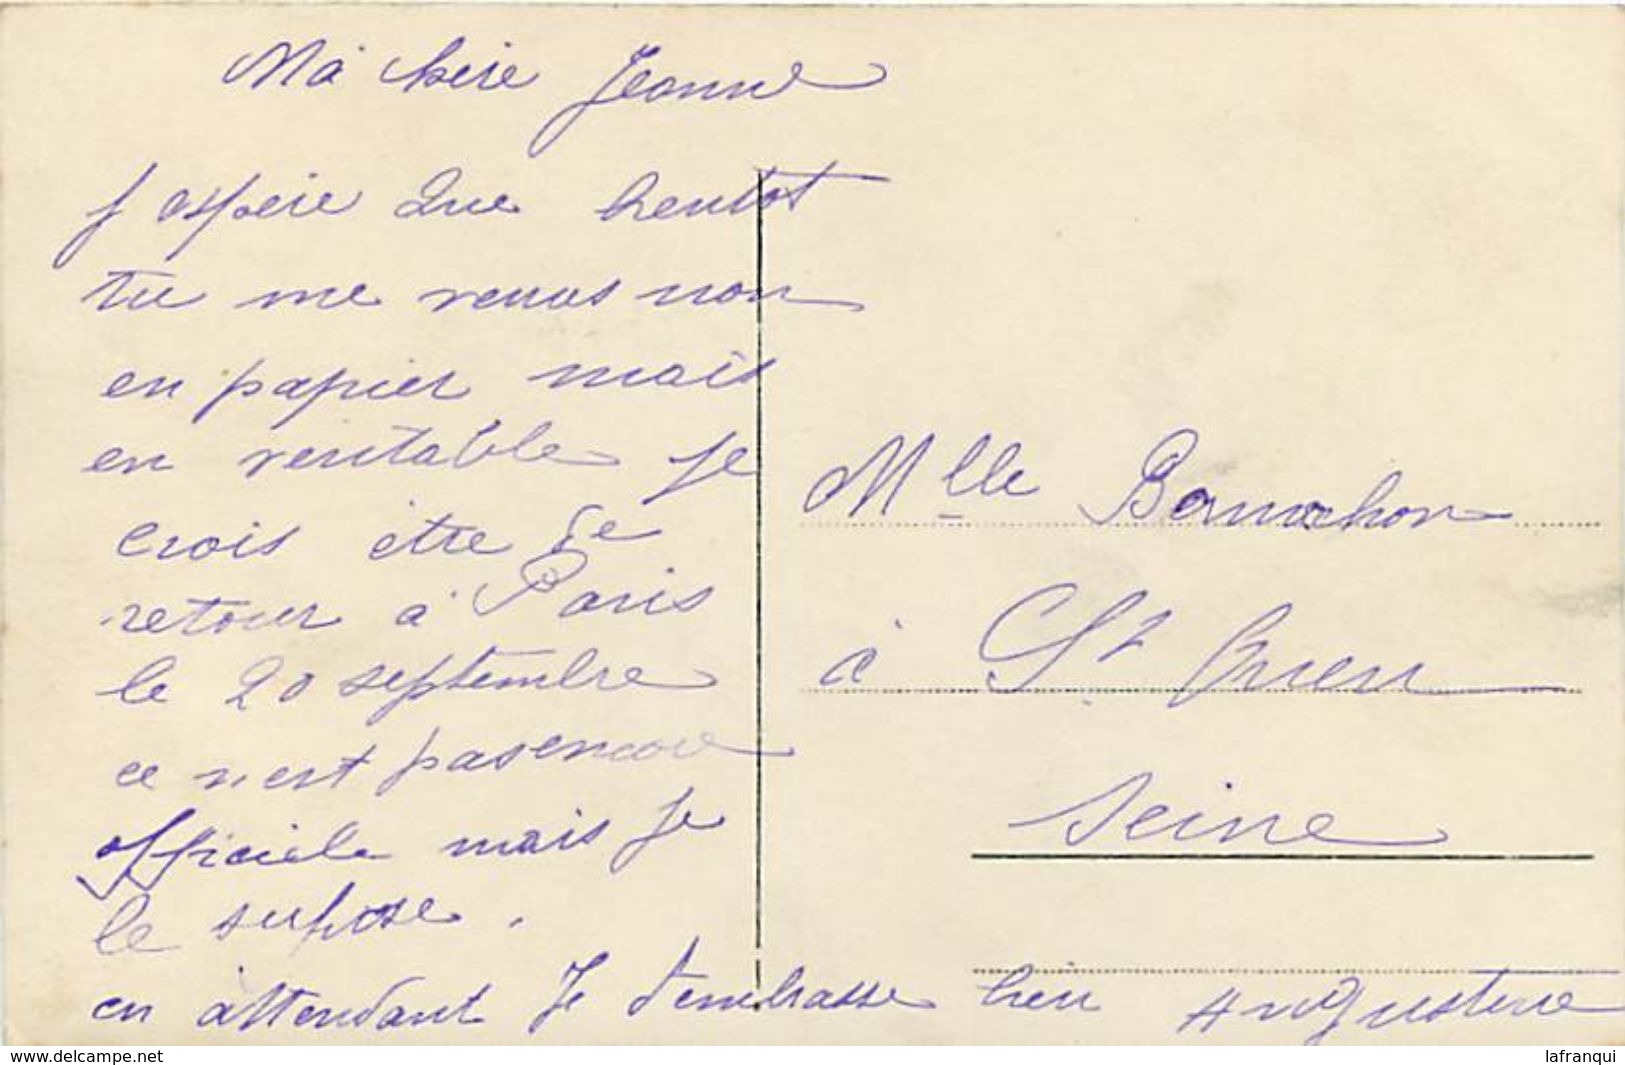 Ma chère Jeanne
j espère que bientot
tu me venus non
en papier mais
en veritable je
crois être de
retour à Paris
le 20 septembre
ce n'est pas encore
officiele mais je
le supose.
en attendant Je t'embrasse bien Augustine
Mlle Bonnachon
à St Brieu
Seine
www.delcampe.net
lafranqui